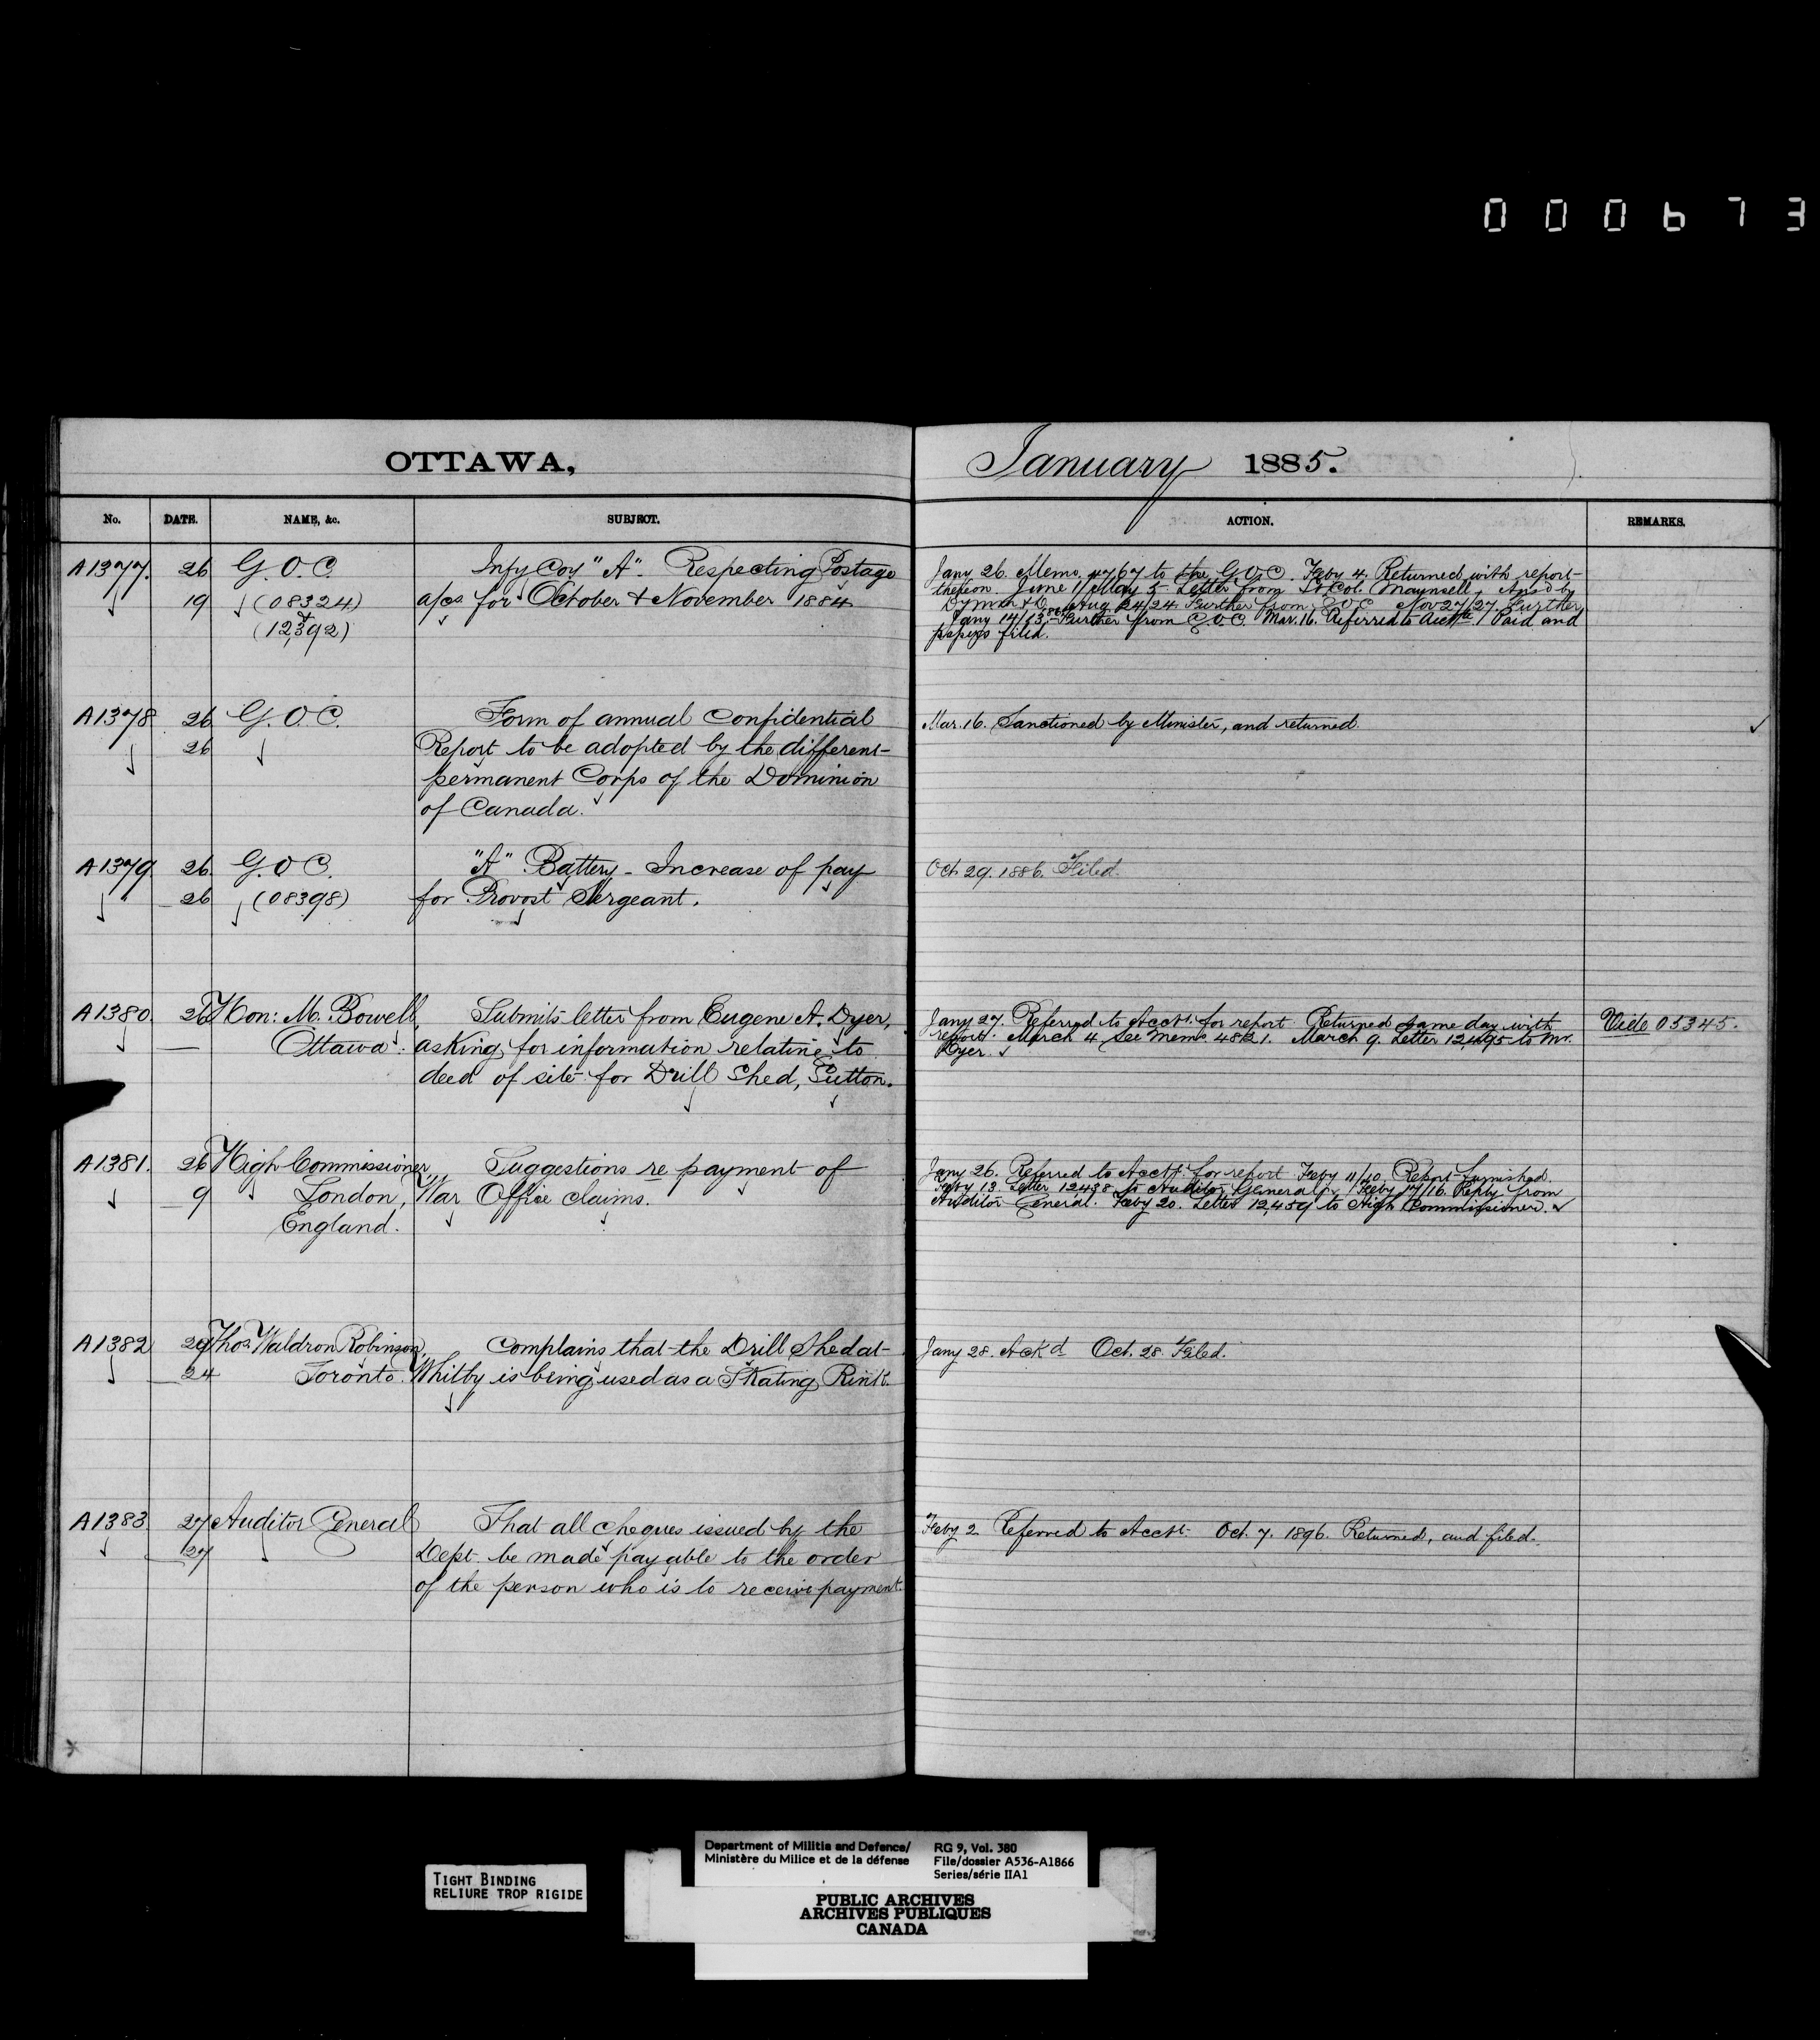 000673
OTTAWA,
January 1885.
No. DATE. NAME, &c. SUBJECT. ACTION. REMARKS.
A1377. 26 G.O.C. Infy Coy "A". Respecting Postage
19 (08324) a/cs for October & November 1884
(12392)
Jany 26. Memo. 4767 to the G.O.C. Feby 4. Returned with report
thereon. June 11/May 5. Letter from Lt Col. Maunsell,
Aug 24/24 Further from G.O.C. Nov 27/27. Further
Jany 14/13/86. Further from G.O.C. Mar. 16. Referred to Acct. Paid and
papers filed.
A1378 26 G.O.C. Form of annual Confidential
26 Report to be adopted by the different
permanent Corps of the Dominion
of Canada.
Mar. 16. Sanctioned by Minister, and returned
A1379 26 G.O.C. "A" Battery - Increase of pay
26 (08398) for Provost Sergeant.
Oct 29. 1886. Filed.
A1380. 26 Hon: M. Bowell, Submits letter from Eugene A. Dyer,
Ottawa. asking for information relating to
deed of site for Drill Shed, Sutton.
Jany 27. Referred to Acct. for report. Returned same day with
report. March 4 See Memo 4821. March 9. Letter 12,495 to Mr.
Dyer.
Vide 05345.
A1381. 26 High Commissioner, Suggestions re payment of
9 London, War Office claims.
England.
Jany 26. Referred to Acct. for report Feby 11/10. Report furnished.
Feby 13. Letter 12438 to Auditor General. Feby 17/16. Reply from
Auditor General. Feby 20. Letter 12,459 to High Commissioner.
A1382 27 Thos Waldron Robinson, Complains that the Drill Shed at
24 Toronto. Whitby is being used as a Skating Rink.
Jany 28. Ack'd Oct. 28. Filed.
A1383 27 Auditor General That all cheques issued by the
27 Dept be made payable to the order
of the person who is to receive payment.
Feby 2 Referred to Acct. Oct. 7. 1896. Returned, and filed.
TIGHT BINDING
RELIURE TROP RIGIDE
Department of Militia and Defence/
Ministère du Milice et de la défense
RG 9, Vol. 380
File/dossier A536-A1866
Series/série IIA1
PUBLIC ARCHIVES
ARCHIVES PUBLIQUES
CANADA